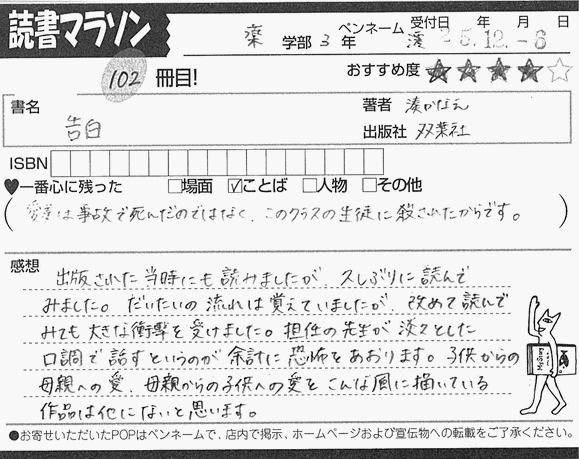 読書マラソン
薬 学部 3 年
ペンネーム 渡
受付日 年 月 日
-5.12.-8
102 冊目!
おすすめ度 ★★★★☆
書名
告白
著者 湊かなえ
出版社 双葉社
ISBN
♥一番心に残った □場面 ☑ことば □人物 □その他
(愛美は事故で死んだのではなく、このクラスの生徒に殺されたからです。)
感想
出版された当時にも読みましたが、久しぶりに読んで
みました。だいたいの流れは覚えていましたが、改めて読んで
みても大きな衝撃を受けました。担任の先生が淡々とした
口調で話すというのが余計に恐怖をあおります。子供からの
母親への愛、母親からの子供への愛をこんな風に描いている
作品は他にないと思います。
●お寄せいただいたPOPはペンネームで、店内で掲示、ホームページおよび宣伝物への転載をご了承ください。